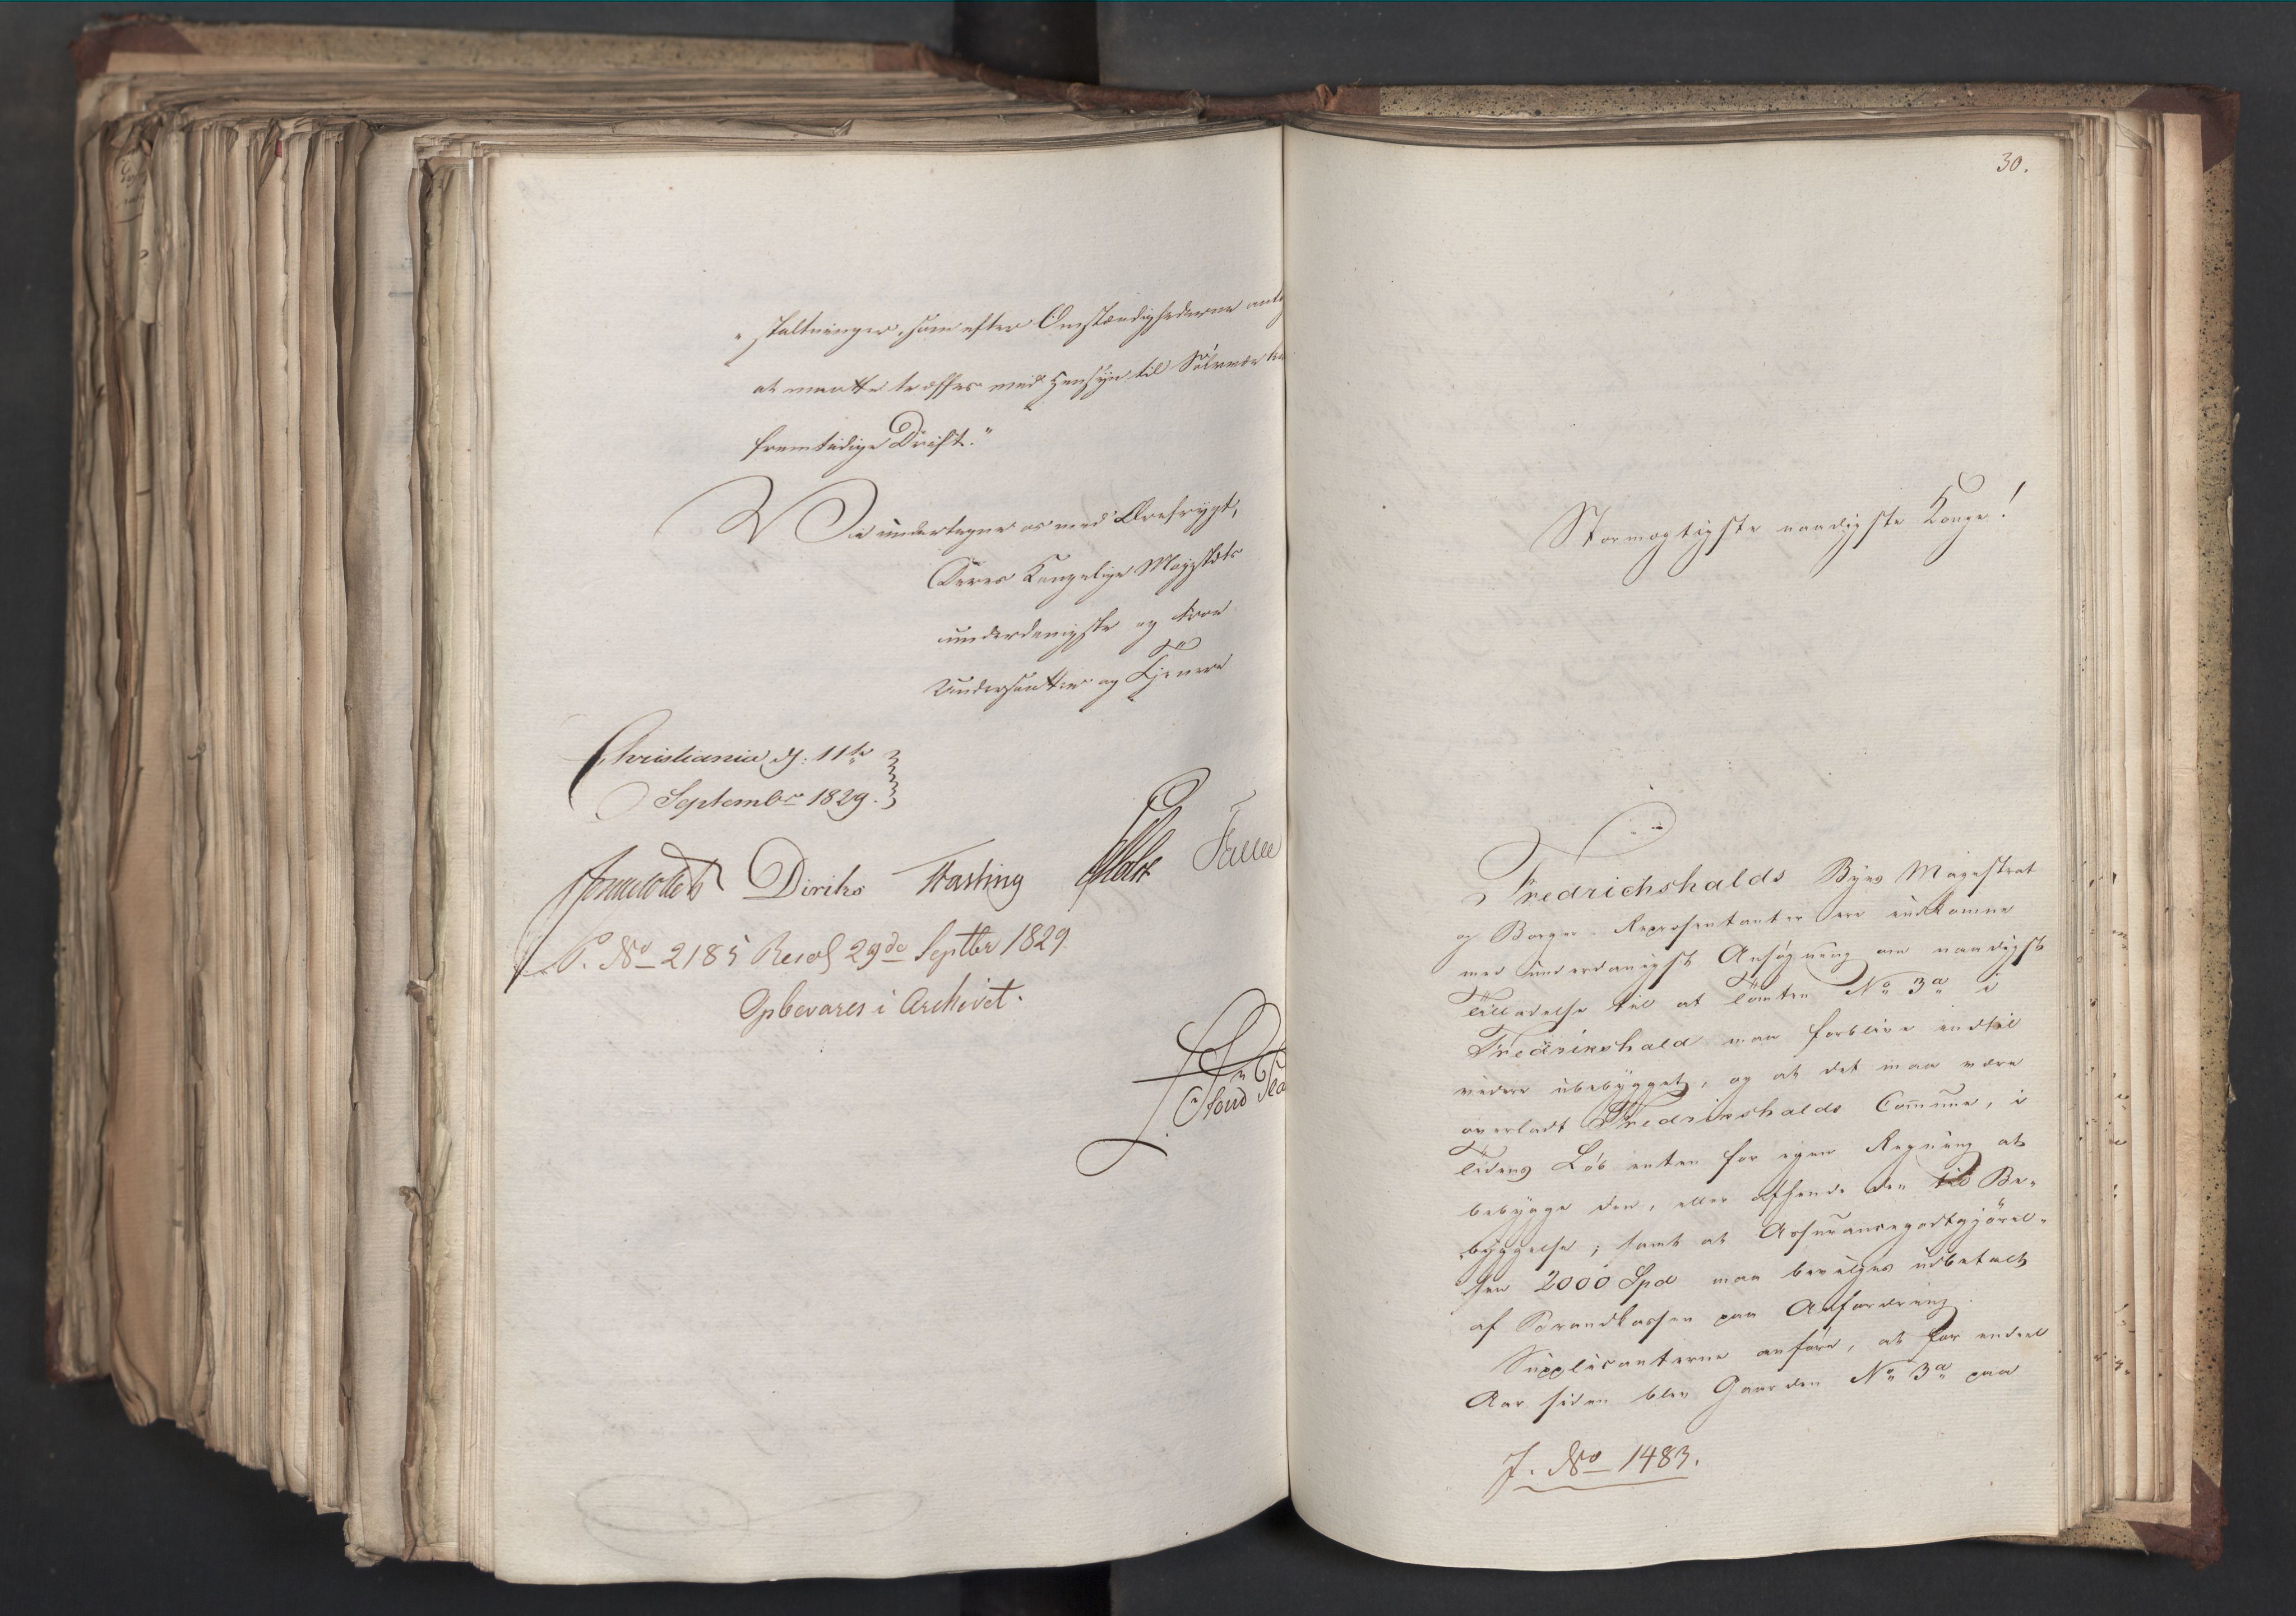 "staltninger, som efter Omstændighederne
at maatte træffes med Hensyn til
fremtidige Drift."
Vi undertegne os med Ærefrygt,
Deres Kongelige Majestæts
underdanigste og troe
Undersaatter og Tjenere
Christiania d. 11te
Septembr 1829.
Diriks Hasting
P. No 2185 Resol 29de Septbr 1829.
Opbevares i Archivet.
30.
Stormægtigste naadigste Konge!
Fredrichshalds Byes Magistrat
og Borger-Repræsentanter ere indkomne
med underdanigst Ansøgning om naadigst
Tilladelse til at Tomten No 3a i
Fredrikshald maa forblive indtil
videre ubebygget, og at det maa være
overladt Fredrikshalds Commune, i
Tidens Løb enten for egen Regning at
bebygge den, eller afhende den til Be-
byggelse; samt at Assurancegodtgjørel-
sen 2000 Spd maa bevilges udbetalt
af Brandkassen paa Anfordring.
Supplicanterne anføre, at for endeel
Aar siden blev Gaarden No 3a paa
J. No 1483.